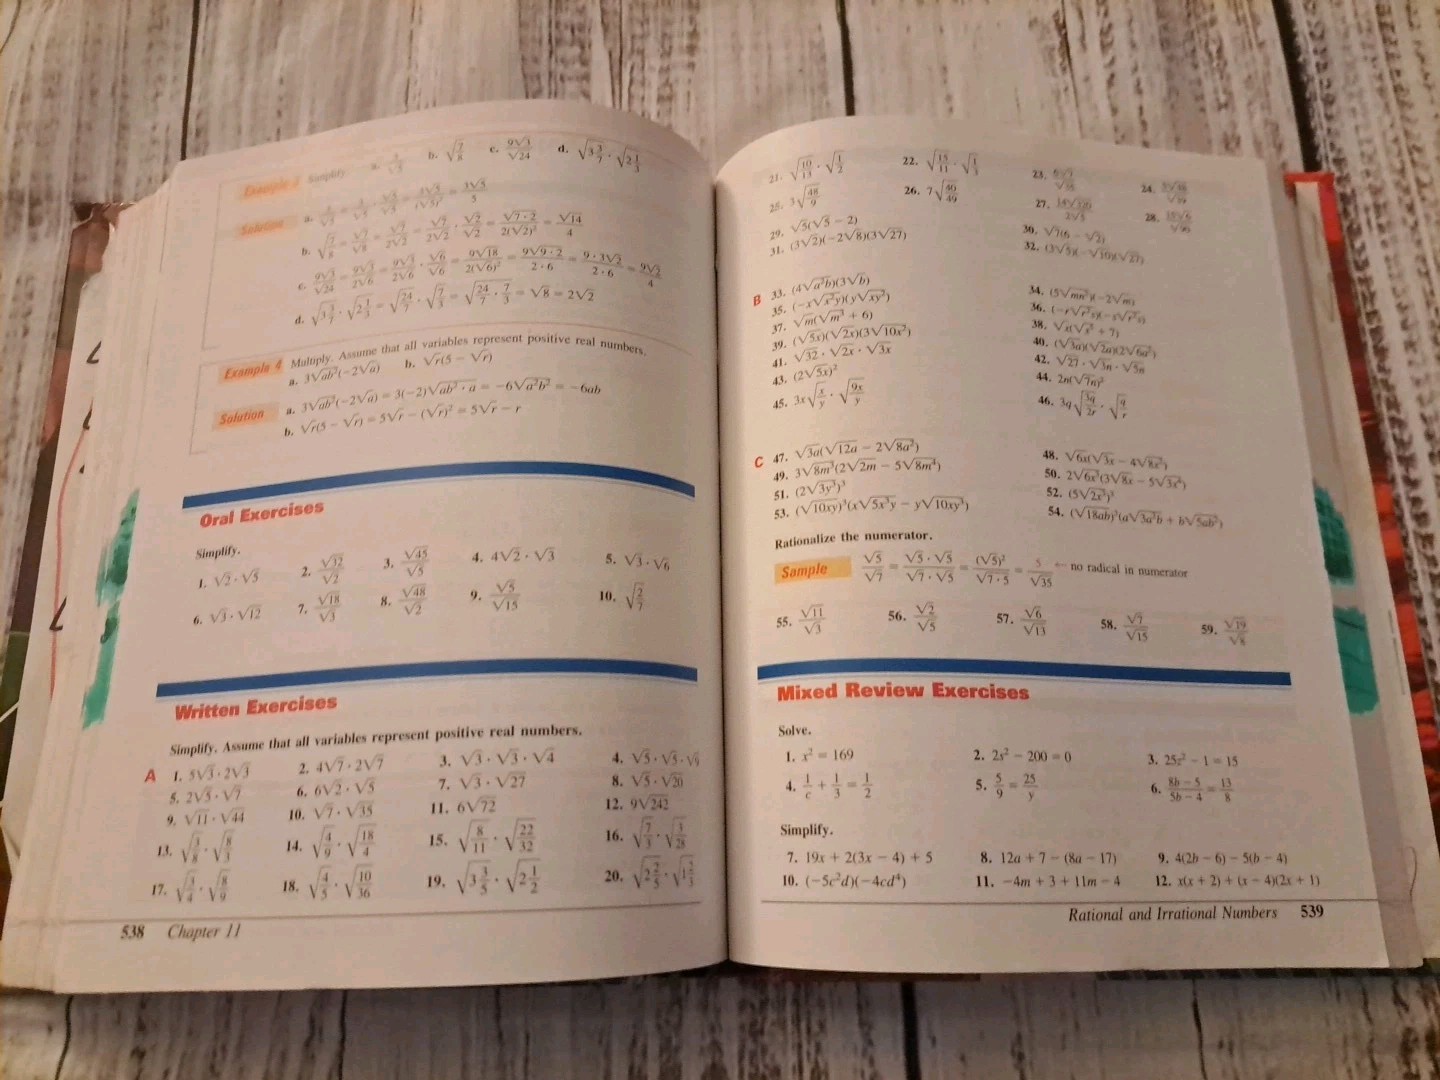 Example 3 Simplify a. 3/√5 b. √(7/8) c. 9√3/√24 d. √(3 3/7) · √(2 1/3)
Solution a. 3/√5 = 3/√5 · √5/√5 = 3√5/(√5)² = 3√5/5
b. √(7/8) = √7/√8 = √7/(2√2) = √7/(2√2) · √2/√2 = √(7 · 2)/(2(√2)²) = √14/4
c. 9√3/√24 = 9√3/(2√6) = 9√3/(2√6) · √6/√6 = 9√18/(2(√6)²) = 9√(9 · 2)/(2 · 6) = 9 · 3√2/(2 · 6) = 9√2/4
d. √(3 3/7) · √(2 1/3) = √(24/7) · √(7/3) = √(24/7 · 7/3) = √8 = 2√2
Example 4 Multiply. Assume that all variables represent positive real numbers.
a. 3√(ab²)(−2√a) b. √r(5 − √r)
Solution a. 3√(ab²)(−2√a) = 3(−2)√(ab² · a) = −6√(a²b²) = −6ab
b. √r(5 − √r) = 5√r − (√r)² = 5√r − r
Oral Exercises
Simplify.
1. √2 · √5 2. √32/√2 3. √45/√5 4. 4√2 · √3 5. √3 · √6
6. √3 · √12 7. √18/√3 8. √48/√2 9. √5/√15 10. √(2/7)
Written Exercises
Simplify. Assume that all variables represent positive real numbers.
A 1. 5√3 · 2√3 2. 4√7 · 2√7 3. √3 · √3 · √4 4. √5 · √5 · √9
5. 2√5 · √7 6. 6√2 · √5 7. √3 · √27 8. √5 · √20
9. √11 · √44 10. √7 · √35 11. 6√72 12. 9√242
13. √(3/8) · √(8/3) 14. √(4/9) · √(18/4) 15. √(8/11) · √(22/32) 16. √(7/3) · √(3/28)
17. √(3/4) · √(8/9) 18. √(4/5) · √(10/36) 19. √(3 3/5) · √(2 1/2) 20. √(2 2/5) · √(1 2/3)
538 Chapter 11
21. √(10/13) · √(1/2) 22. √(15/11) · √(1/3) 23. 24.
25. 3√(48/9) 26. 7√(40/49) 27. 14√120/(2√5) 28.
29. √5(√5 − 2) 30. √7(6 − √2)
31. (3√2)(−2√8)(3√27) 32. (3√5)(−√10)(√27)
B 33. (4√(a²b))(3√b) 34.
35. (−x√(x²y))(y√(xy²)) 36. (−r√(r²s))(−s√(r²s))
37. √m(√m³ + 6) 38. √x(√x³ + 7)
39. (√5x)(√2x)(3√10x²) 40. (√3a)(√2a)(2√6a²)
41. √32 · √2x · √3x 42. √27 · √3n · √5n
43. (2√5x)² 44. 2n(√7n)²
45. 3x√(x/y) · √(9x/y) 46. 3q√(3q/2r) · √(q/r)
C 47. √3a(√12a − 2√8a²) 48. √6x(√3x − 4√8x²)
49. 3√8m³(2√2m − 5√8m⁴) 50. 2√6x³(3√8x − 5√3x²)
51. (2√3y³)³ 52. (5√2x³)³
53. (√10xy)³(x√5x³y − y√10xy³) 54. (√18ab)³(a√3a³b + b√5ab³)
Rationalize the numerator.
Sample √5/√7 = √5 · √5/(√7 · √5) = (√5)²/√(7 · 5) = 5/√35 ← no radical in numerator
55. √11/√3 56. √2/√5 57. √6/√13 58. √7/√15 59. √19/√8
Mixed Review Exercises
Solve.
1. x² = 169 2. 2s² − 200 = 0 3. 25z² − 1 = 15
4. 1/c + 1/3 = 1/2 5. 5/9 = 25/y 6. (8b − 5)/(5b − 4) = 13/8
Simplify.
7. 19x + 2(3x − 4) + 5 8. 12a + 7 − (8a − 17) 9. 4(2b − 6) − 5(b − 4)
10. (−5c²d)(−4cd⁴) 11. −4m + 3 + 11m − 4 12. x(x + 2) + (x − 4)(2x + 1)
Rational and Irrational Numbers 539